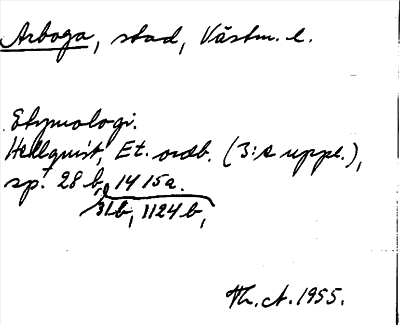 Arboga, stad, Västm. l.
Etymologi.
Hellquist, Et. ordb. (3:e uppl.),
sp. 28 b, 1415a.
31b, 1124b,
Th. A. 1955.